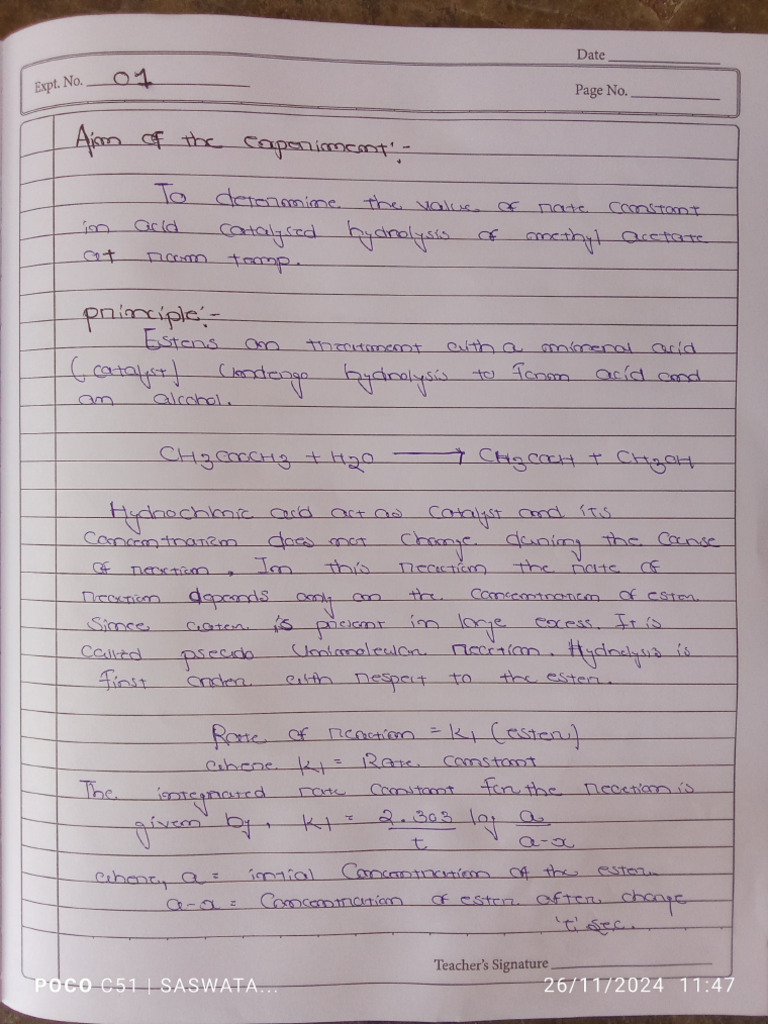 Date
Expt. No. 01
Page No.
Aim of the experiment :-
To determine the value of rate constant
in acid catalysed hydrolysis of methyl acetate
at room temp.
principle :-
Esters on treatment with a mineral acid
(catalyst) Undergo hydrolysis to form acid and
an alcohol.
CH3COOCH3 + H2O ⟶ CH3COOH + CH3OH
Hydrochloric acid act as Catalyst and its
Concentration does not Change during the Course
of reaction, In this reaction the rate of
reaction depends only on the concentration of ester
Since water is present in large excess. It is
called pseudo Unimolecular reaction. Hydrolysis is
first order with respect to the ester.
Rate of reaction = K1 (ester)
where K1 = Rate constant
The integrated rate constant for the reaction is
given by, K1 = 2.303/t log a/a-x
where, a = initial Concentration of the ester
a-x = Concentration of ester after change
't' sec.
Teacher's Signature
POCO C51 | SASWATA...
26/11/2024 11:47